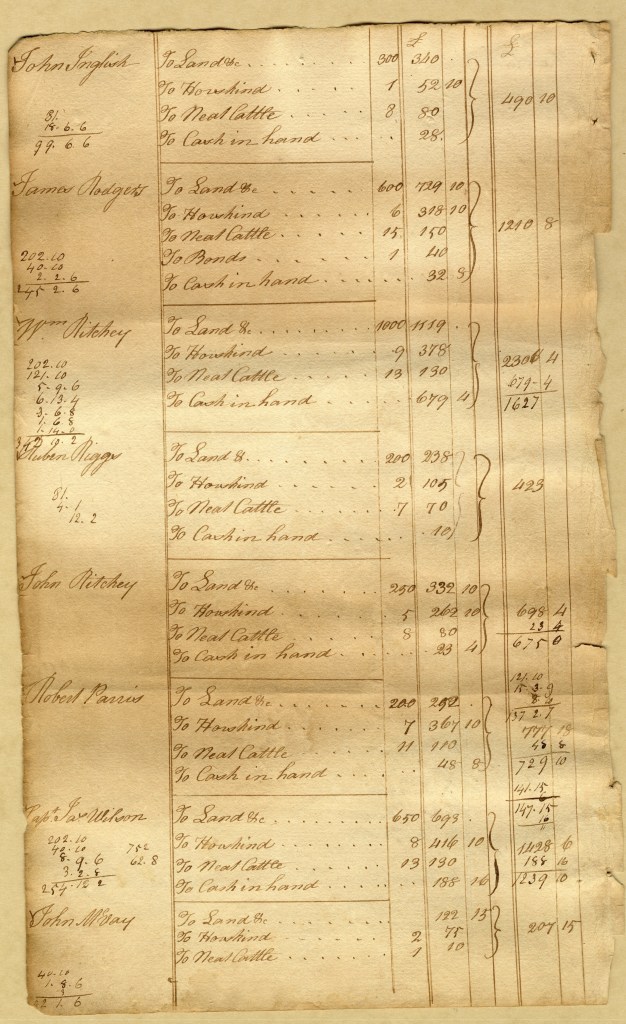 £ £
John Inglish To Land &c. . . . . . . . . 300 340
To Horskind . . . . . . . 1 52 10
To Neat Cattle . . . . . . 8 80
490 10
To Cash in hand . . . . 28
81.
18. 6. 6
99. 6 6
James Rodgers To Land &c. . . . . . . . . 600 729 10
To Horskind . . . . . . . 6 318 10
To Neat Cattle . . . . . . 15 150
1210 8
To Bonds . . . . . . . 1 40
To Cash in hand . . . . 32 8
202. 10
40. 10
2. 2. 6
245 2. 6
Wm Ritchey To Land &c . . . . . . . . . 1000 1119
To Horskind . . . . . . . 9 378
To Neat Cattle . . . . . . 13 130
To Cash in hand . . . . 679 4
2306 4
679 - 4
1627
202. 10
121. 10
5. 9. 6
6. 13. 4
3. 6. 8
1. 6. 8
Ruben Riggs To Land &. . . . . . . . . 200 238
To Horskind . . . . . . . 2 105
To Neat Cattle . . . . . . 7 70
To Cash in hand . . . . 10
423
81.
4. 1
12. 2
John Ritchey To Land &c . . . . . . . . . 250 332 10
To Horskind . . . . . . . 5 262 10
To Neat Cattle . . . . . . 8 80
To Cash in hand . . . . 23 4
698 4
23 4
675 0
Robert Parris To Land &c . . . . . . . . . 200 252
To Horskind . . . . . . . 7 367 10
To Neat Cattle . . . . . . 11 110
To Cash in hand . . . . 48 8
121. 10
137 2. 7
777 18
48 8
729 10
141. 15
147. 15
Capt. Jas Wilson To Land &c . . . . . . . . . 650 693
To Horskind . . . . . . . 8 416 10
To Neat Cattle . . . . . . 13 130
To Cash in hand . . . . 188 16
1428 6
188 16
1239 10
202. 10
40. 10
8. 9. 6
3. 2. 8
752
62. 8
John McVay To Land &c . . . . . . . . . 122 15
To Horskind . . . . . . . 2 75
To Neat Cattle . . . . . . 1 10
207 15
40. 10
1. 8. 6